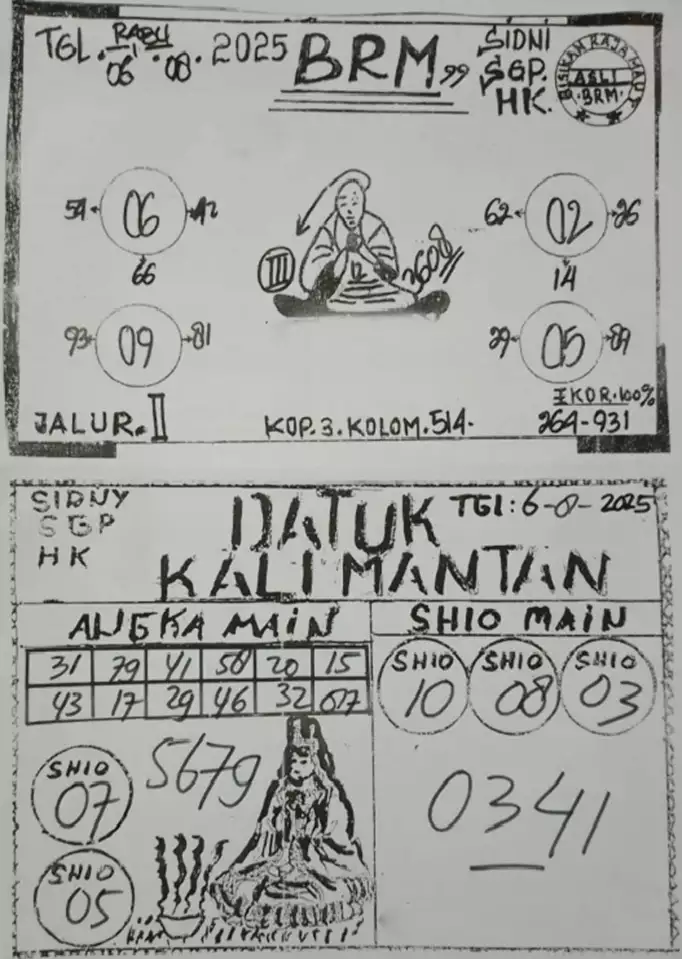 TGL. RABU 06.08.2025
BRM 99
SIDNI
SGP.
HK.
BISIKAN RAJA MAUT
ASLI
BRM
54 06 42
66
62 02 26
14
III
93 09 81
29 05 89
EKOR.100%
JALUR.II
KOP.3.KOLOM.514.
264-931
SIDNY
SGP
HK
DATUK
KALIMANTAN
TGl:6-8-2025
ANGKA MAIN
31 79 41 58 20 15
43 17 29 46 32 67
SHIO MAIN
SHIO 10
SHIO 08
SHIO 03
SHIO 07
5679
0341
SHIO 05